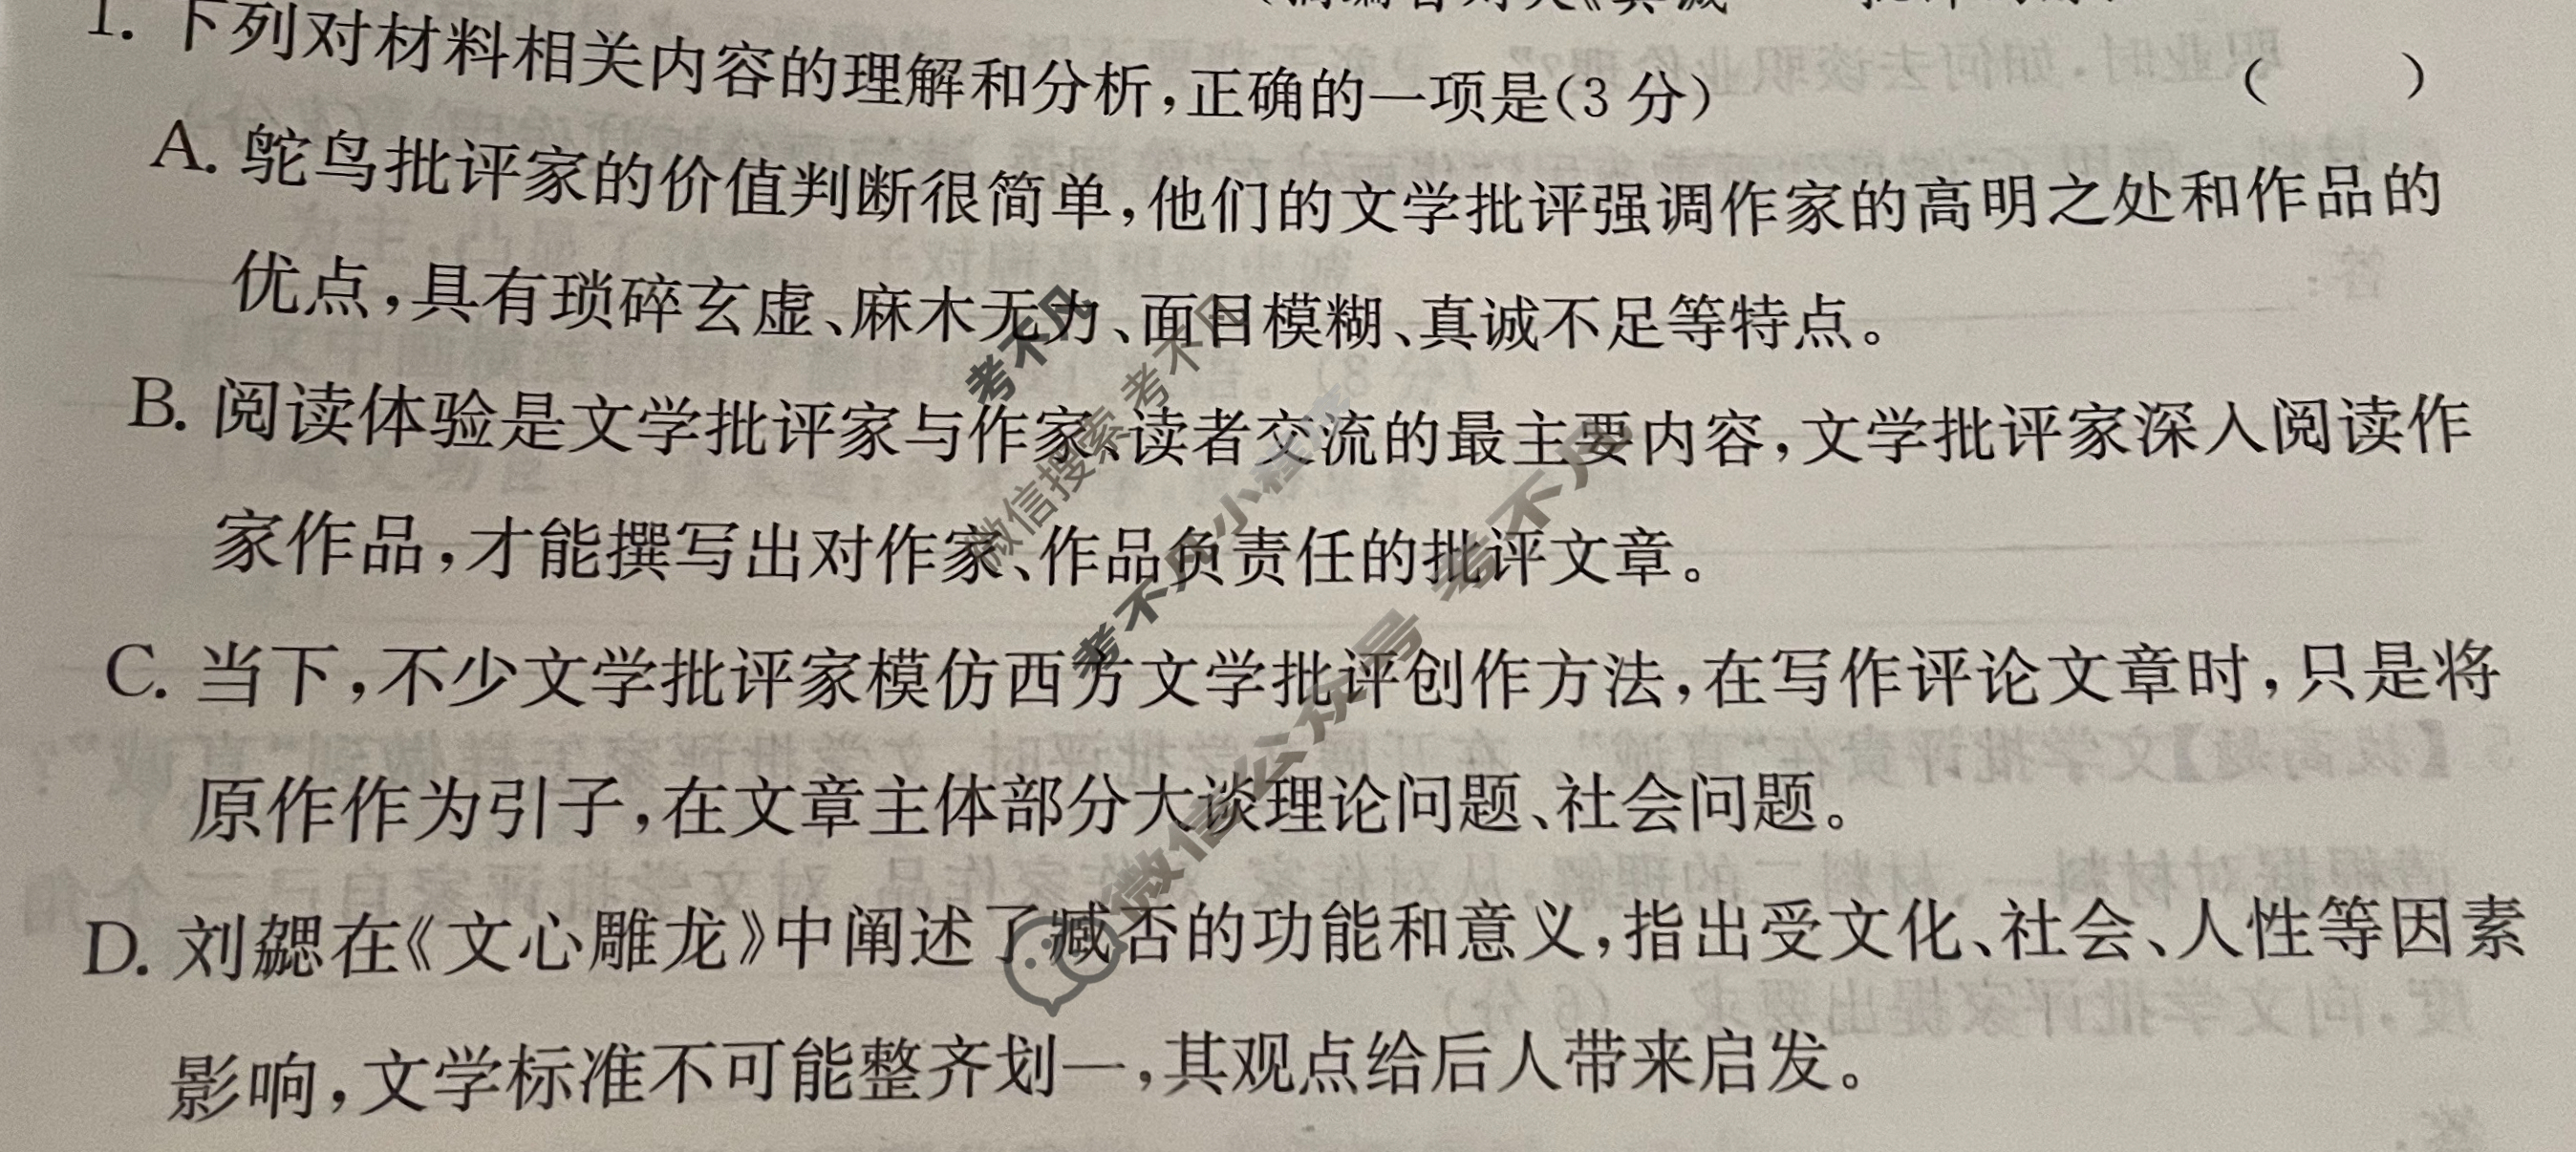 1. 下列对材料相关内容的理解和分析,正确的一项是(3 分) (    )
A. 鸵鸟批评家的价值判断很简单,他们的文学批评强调作家的高明之处和作品的
优点,具有琐碎玄虚、麻木无力、面目模糊、真诚不足等特点。
B. 阅读体验是文学批评家与作家、读者交流的最主要内容,文学批评家深入阅读作
家作品,才能撰写出对作家、作品负责任的批评文章。
C. 当下,不少文学批评家模仿西方文学批评创作方法,在写作评论文章时,只是将
原作作为引子,在文章主体部分大谈理论问题、社会问题。
D. 刘勰在《文心雕龙》中阐述了臧否的功能和意义,指出受文化、社会、人性等因素
影响,文学标准不可能整齐划一,其观点给后人带来启发。
考不凡
微信搜索 考不凡
考不凡小程序
微信公众号 考不凡